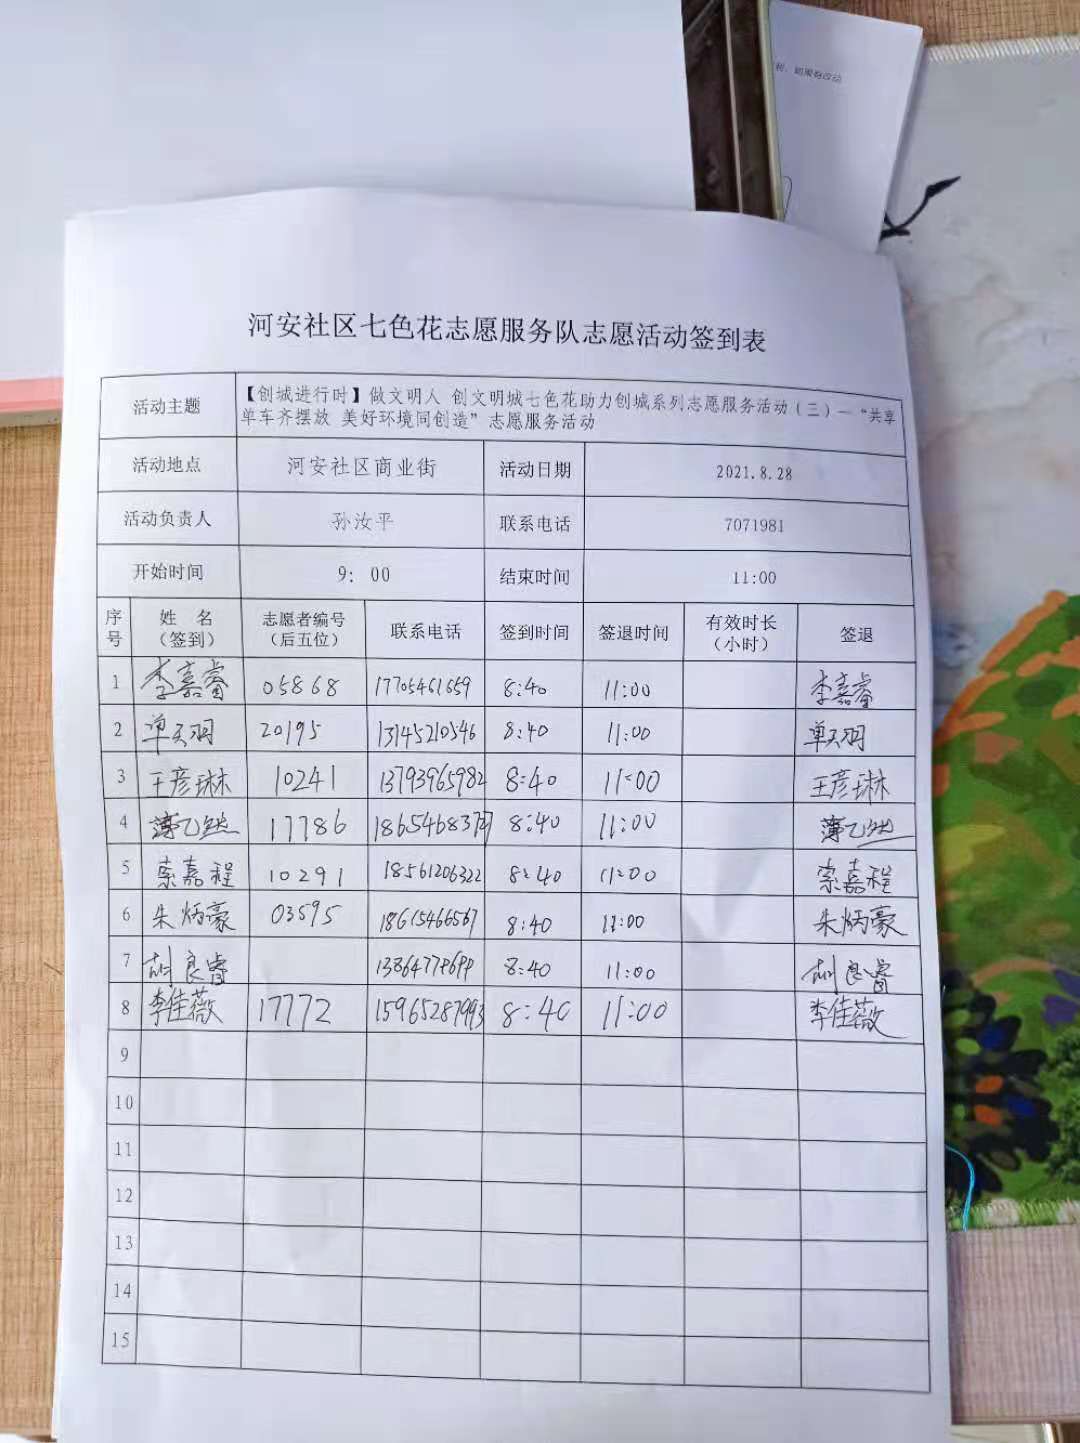 时，如果有改动
河安社区七色花志愿服务队志愿活动签到表
活动主题 【创城进行时】做文明人 创文明城七色花助力创城系列志愿服务活动（三）—“共享
单车齐摆放 美好环境同创造”志愿服务活动
活动地点 河安社区商业街 活动日期 2021.8.28
活动负责人 孙汝平 联系电话 7071981
开始时间 9：00 结束时间 11:00
序号 姓 名（签到） 志愿者编号（后五位） 联系电话 签到时间 签退时间 有效时长（小时） 签退
1 李嘉睿 05868 17705461659 8:40 11:00 李嘉睿
2 单天羽 20195 13145210546 8:40 11:00 单天羽
3 王彦琳 10241 13793965982 8:40 11:00 王彦琳
4 薄乙然 17786 8:40 11:00 薄乙然
5 索嘉程 10291 18561206322 8:40 11:00 索嘉程
6 朱炳豪 03595 18615466567 8:40 11:00 朱炳豪
7 胡良睿 8:40 11:00 胡良睿
8 李佳薇 17772 15965287993 8:40 11:00 李佳薇
9
10
11
12
13
14
15